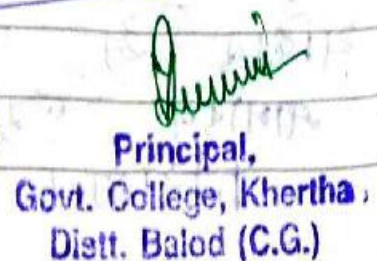 Principal,
Govt. College, Khertha,
Distt. Balod (C.G.)